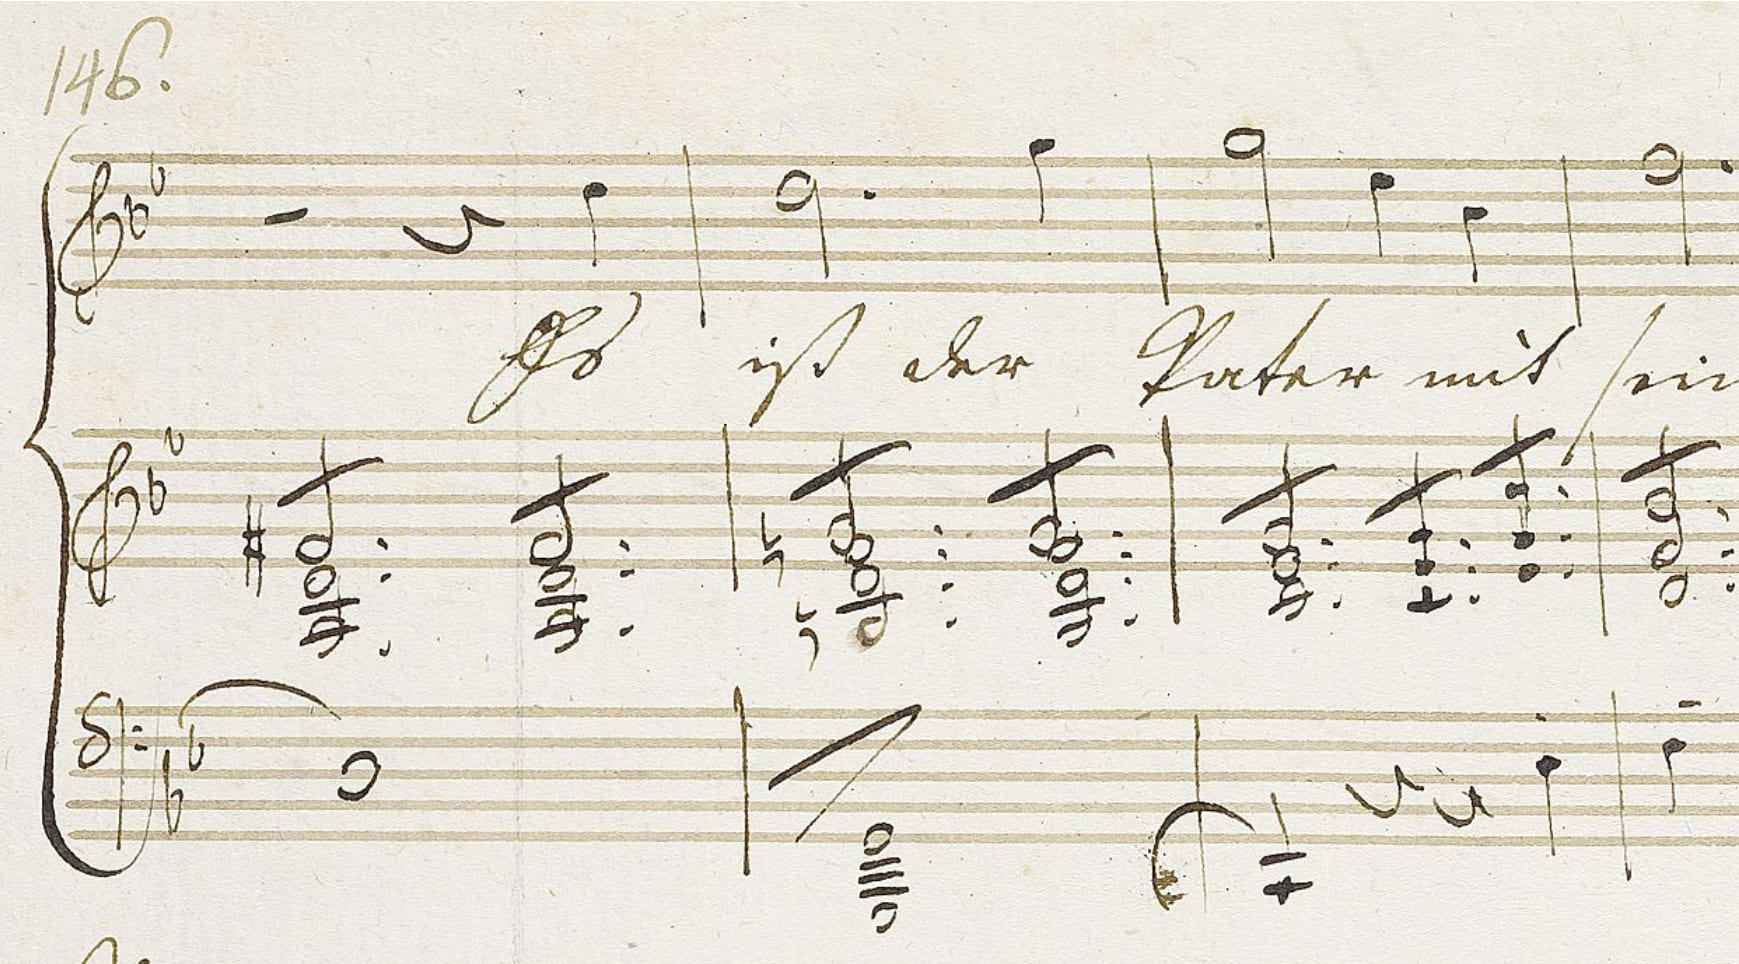 146.
Es ist der Vater mit sein